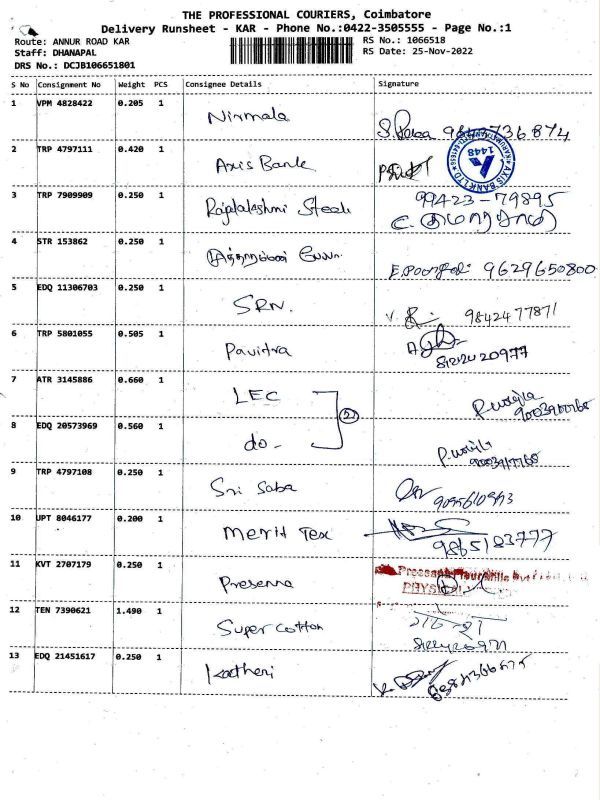 THE PROFESSIONAL COURIERS, Coimbatore
Delivery Runsheet - KAR - Phone No.:0422-3505555 - Page No.:1
Route: ANNUR ROAD KAR RS No.: 1066518
Staff: DHANAPAL RS Date: 25-Nov-2022
DRS No.: DCJB106651801
S No Consignment No Weight PCS Consignee Details Signature
1 VPM 4828422 0.205 1 Nirmala
2 TRP 4797111 0.420 1 Axis Bank AXIS BANK LTD 1448
3 TRP 7909909 0.250 1 Rajalakshmi Steels 99423-79895
4 STR 153862 0.250 1 9629650800
5 EDQ 11306703 0.250 1 SRN. 9842477871
6 TRP 5801055 0.505 1 Pavitra
7 ATR 3145886 0.660 1 LEC
8 EDQ 20573969 0.560 1 do-
9 TRP 4797108 0.250 1 Sri Saba
10 UPT 8046177 0.200 1 Merit Tex 9865183777
11 KVT 2707179 0.250 1 Presenna
12 TEN 7390621 1.490 1 Super Cotton
13 EDQ 21451617 0.250 1 Kartheri